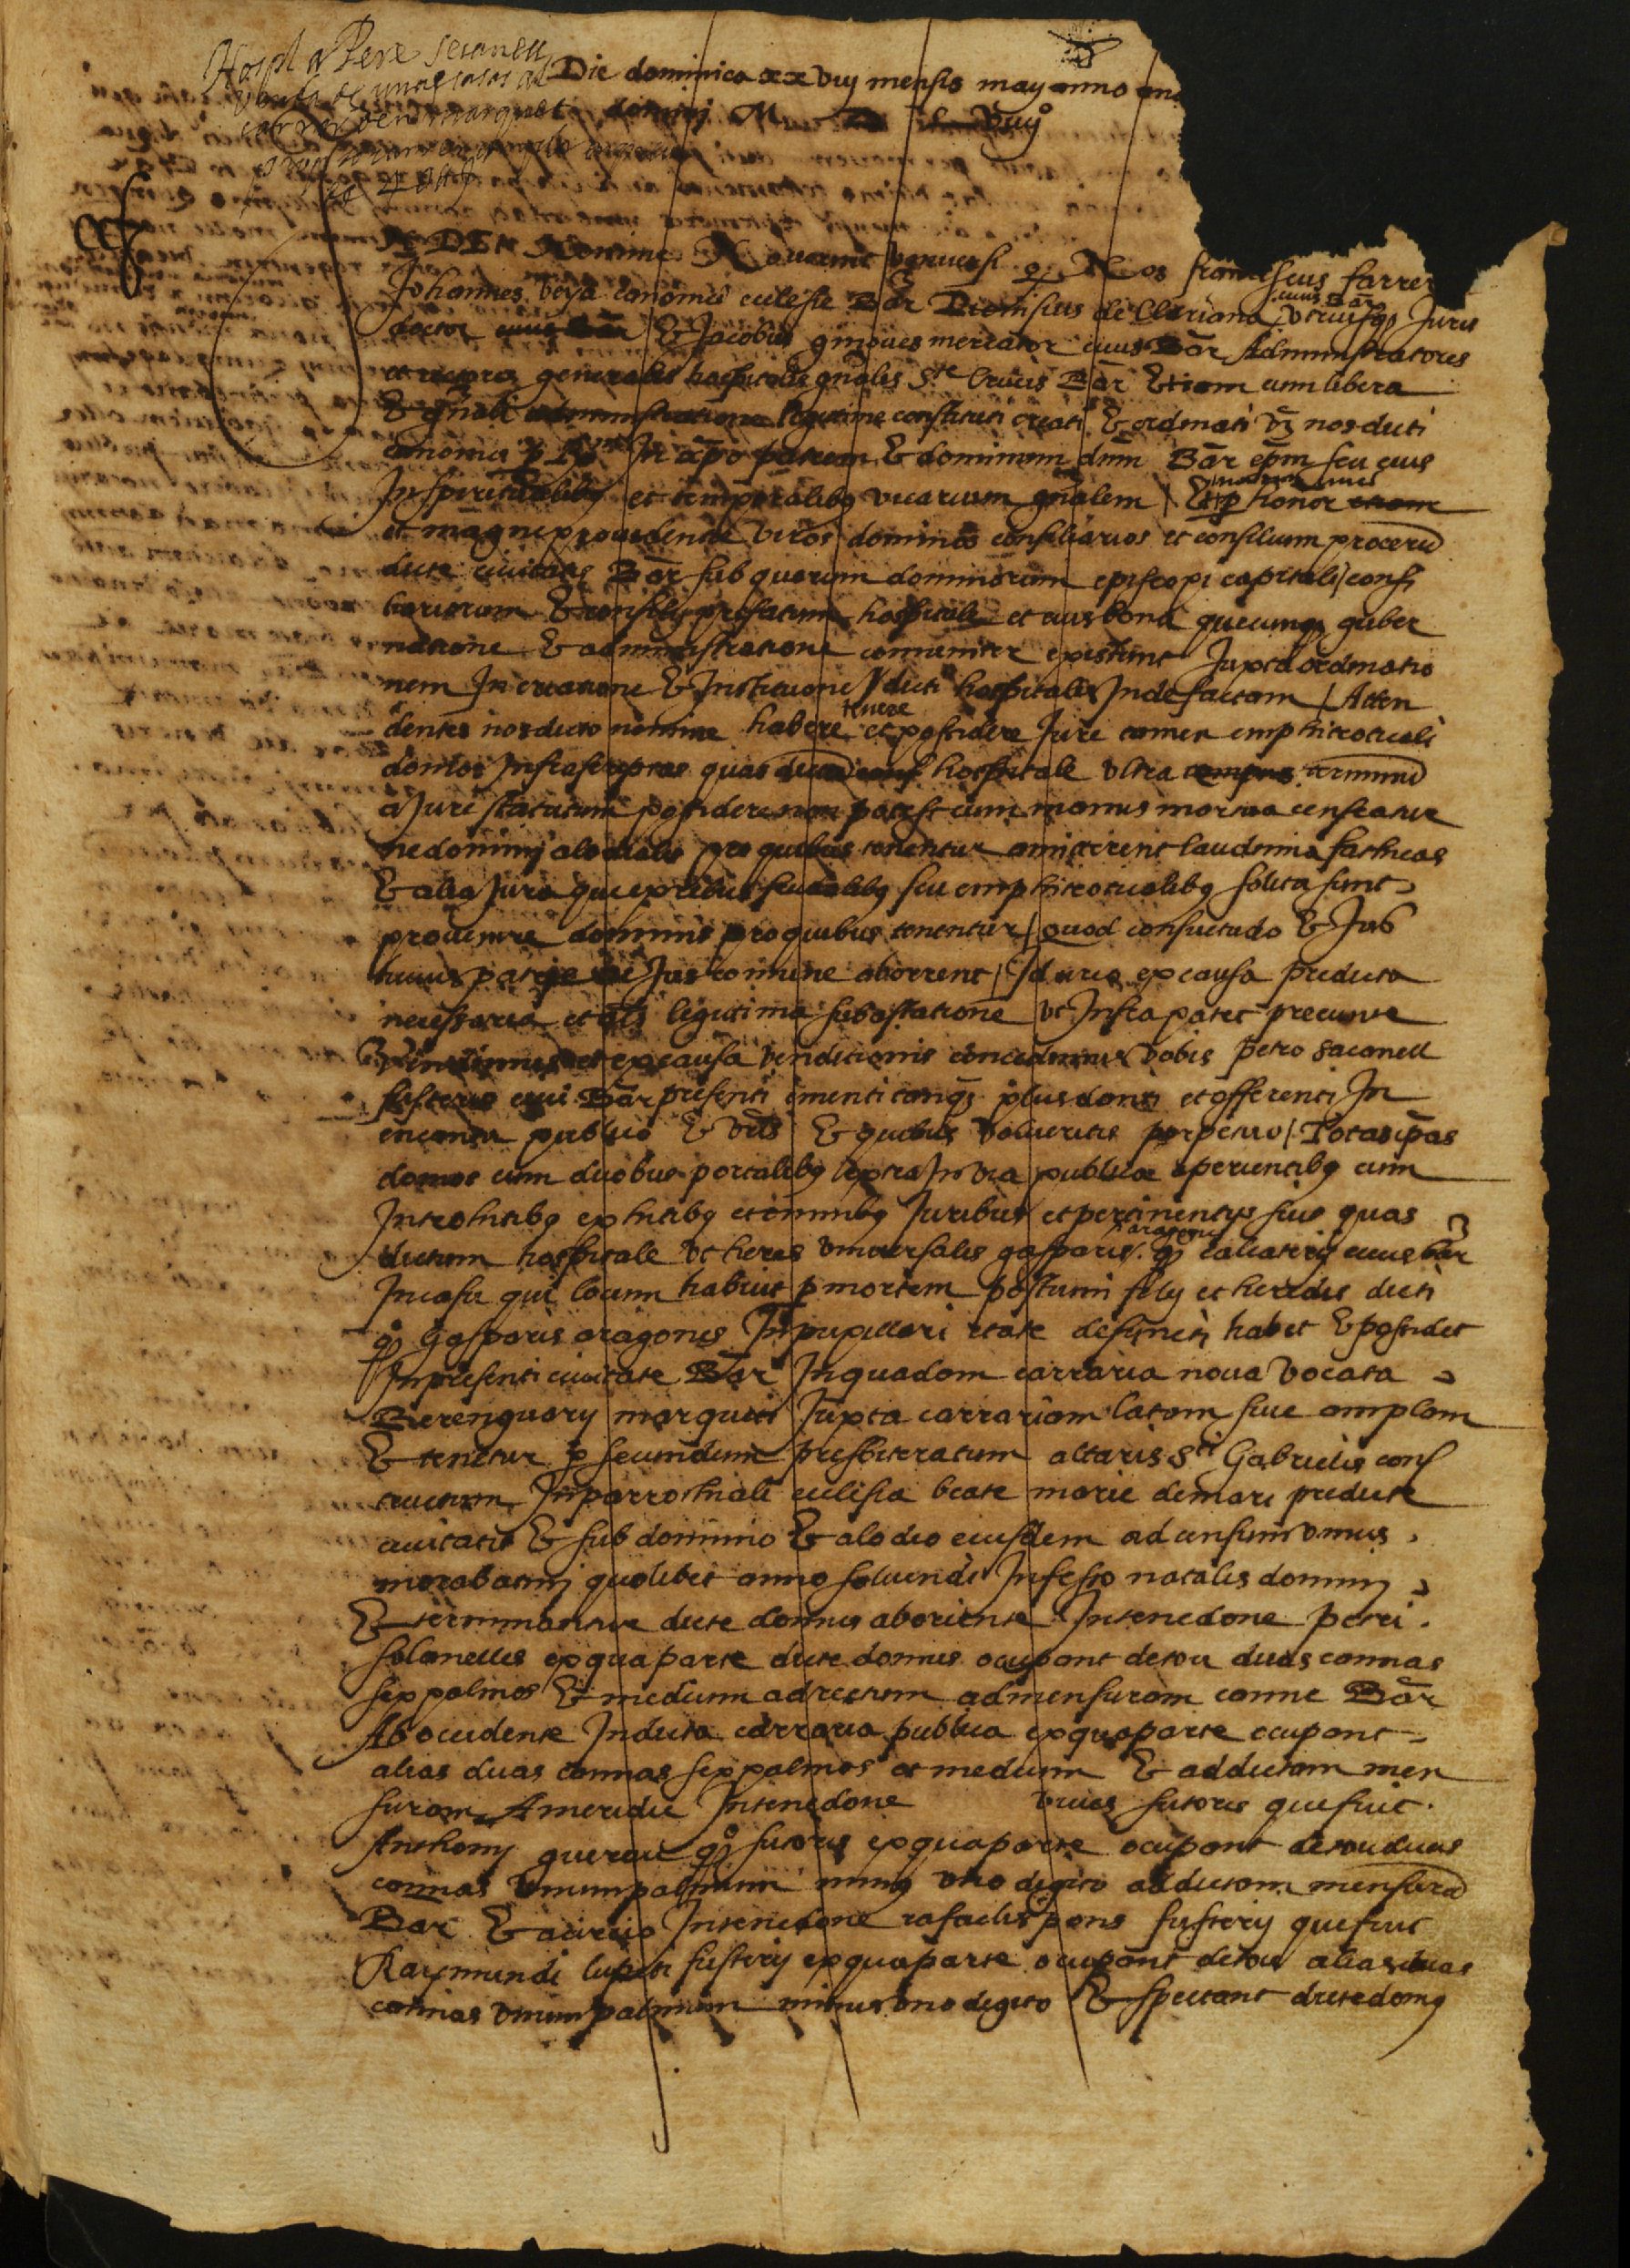 Hospl a Pere seconell
venta de unas casas al
carrer den marquet
Die dominica xxviiij mensis maij anno
domini M D L viiijº
IN DEI Nomine Noverint universi q Nos franciscus farrer
Johannes veya canonici ecclesie Bar Dionisius de Clariana utriusqz Juris
civis Bar
doctor & Jacobus gmoues mercator civis Bar Administratores
et rectores generales hospitalis gnalis Ste Crucis Bar Etiam cum libera
& gnali administratione legitime constituti creati & ordinati vz nos dicti
canonici p Rm In xpo patrem & dominum dnm Bar epm seu eius
In spiritualibz et temporalibz vicarium gnalem / Et p honor
et magne providencie viros dominos consiliarios et consilium proceru
dicte civitatis Bar sub quorum dominorum episcopi capituli consi
liariorum & consilij prefatum hospitale et eius bona quecumqz guber
natione & administratione comuniter existunt Juxta ordinatio
nem In creatione & Institutione dicti hospitalis Inde factam / Atten
dentes nos dicto nomine habere tenere et possidere Jure tamen emphiteoticali
domos Infrascriptas quas hospitale ultra terminu
a Jure statutum possidere non potest cum manus mortua censeatur
ne domini alodiales pro quibus tenentur amitterent laudimia faticas
& alia Jura que ex rebus feudalibz seu emphiteoticalibz solita sunt
provenire dominis pro quibus tenentur / quod consuetudo & Jus
huius patrie Jus comune aborrent / Idcirco ex causa predicta
necessaria et als legitima subastatione ut Infra patet precunte
Vendimus et ex causa venditionis concedimus vobis Petro saconell
fusterio civi Bar presenti ementi tanqz plus danti et offerenti In
encantu publico & vris & quibus volueritis perpetuo / Totas ipas
domos cum duobus portalibz extra In via publica aperientibz cum
Introhitibz exhitibz et omnibz Juribus et pertinentijs suis quas
dictum hospitale ut heres universalis gasparis aragones qº calcaterij civis bar
In casu qui locum habuit p mortem postumi filij et heredis dicti
qº Gasparis aragones In pupillari etate defuncti habet & possidet
In presenti civitate Bar In quadam carraria nova vocata
Berenguarij marqueti Juxta carrariam latam sive amplam
& tenetur p secundum presbiteratum altaris Sti Gabrielis cons
tructum In parrochiali ecclesia beate marie de mari predicte
civitatis & sub dominio & alodio eiusdem ad censum unius
morabatini quolibet anno solvendi In festo natalis domini
& terminantur dicte domus ab oriente In tenedone petri
solanelles ex qua parte dicte domus ocupant de tou duas cannas
sex palmos & medium ad rectam ad mensuram canne Bar
Ab occidente In dicta carraria publica ex qua parte ocupant
alias duas cannas sex palmos et medium & ad dictam men
suram A meridie In tenedone vivas sutoris que fuit
Anthonij querau qº sutoris ex qua parte ocupant de tou duas
cannas unum palmum minus uno digito ad dictam mensura
Bar & a circio In tenedone rafaelis pons fusterij que fuit
Raymundi lupeti fusterij ex qua parte ocupant de tou alias duas
cannas unum palmum minus uno digito & spectant dicte domq